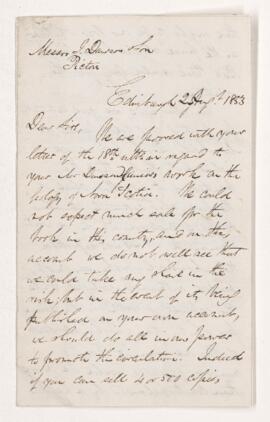 Messrs J. Dawson & Son
Pictou
Edinburgh 2 Augt 1853
Dear Sirs,
We are favored with your
letter of the 18th ulto in regard to
your Mr Dawson's work on the
Geology of Nova Scotia. We could
not expect much sale for the
book in this country, and on this
account we do not well see that
we could take any share in the
risk, but in the event of its being
published on your own account,
we should do all in our power
to promote the circulation. Indeed
if you can sell 4 or 500 copies